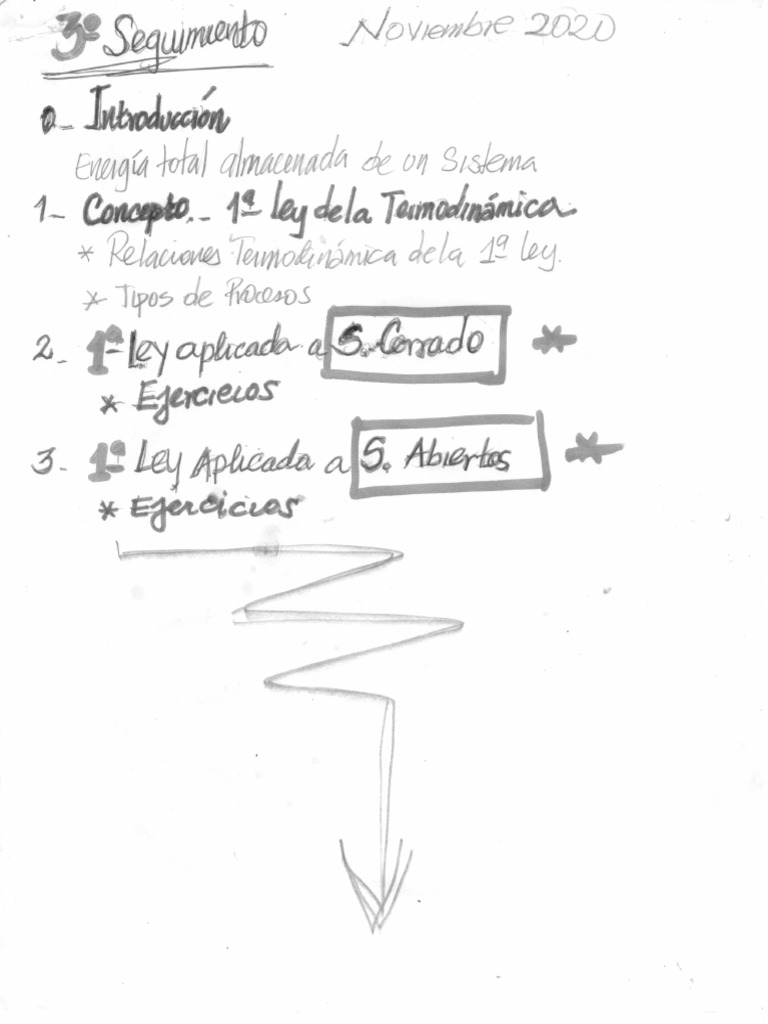 3º Seguimiento Noviembre 2020
0- Introducción
Energía total almacenada de un Sistema
1- Concepto.- 1ª ley de la Termodinámica.
* Relaciones Termodinámica de la 1ª ley.
* Tipos de Procesos
2- 1ª Ley aplicada a S. Cerrado *
* Ejercicios
3- 1ª Ley Aplicada a S. Abiertos *
* Ejercicios